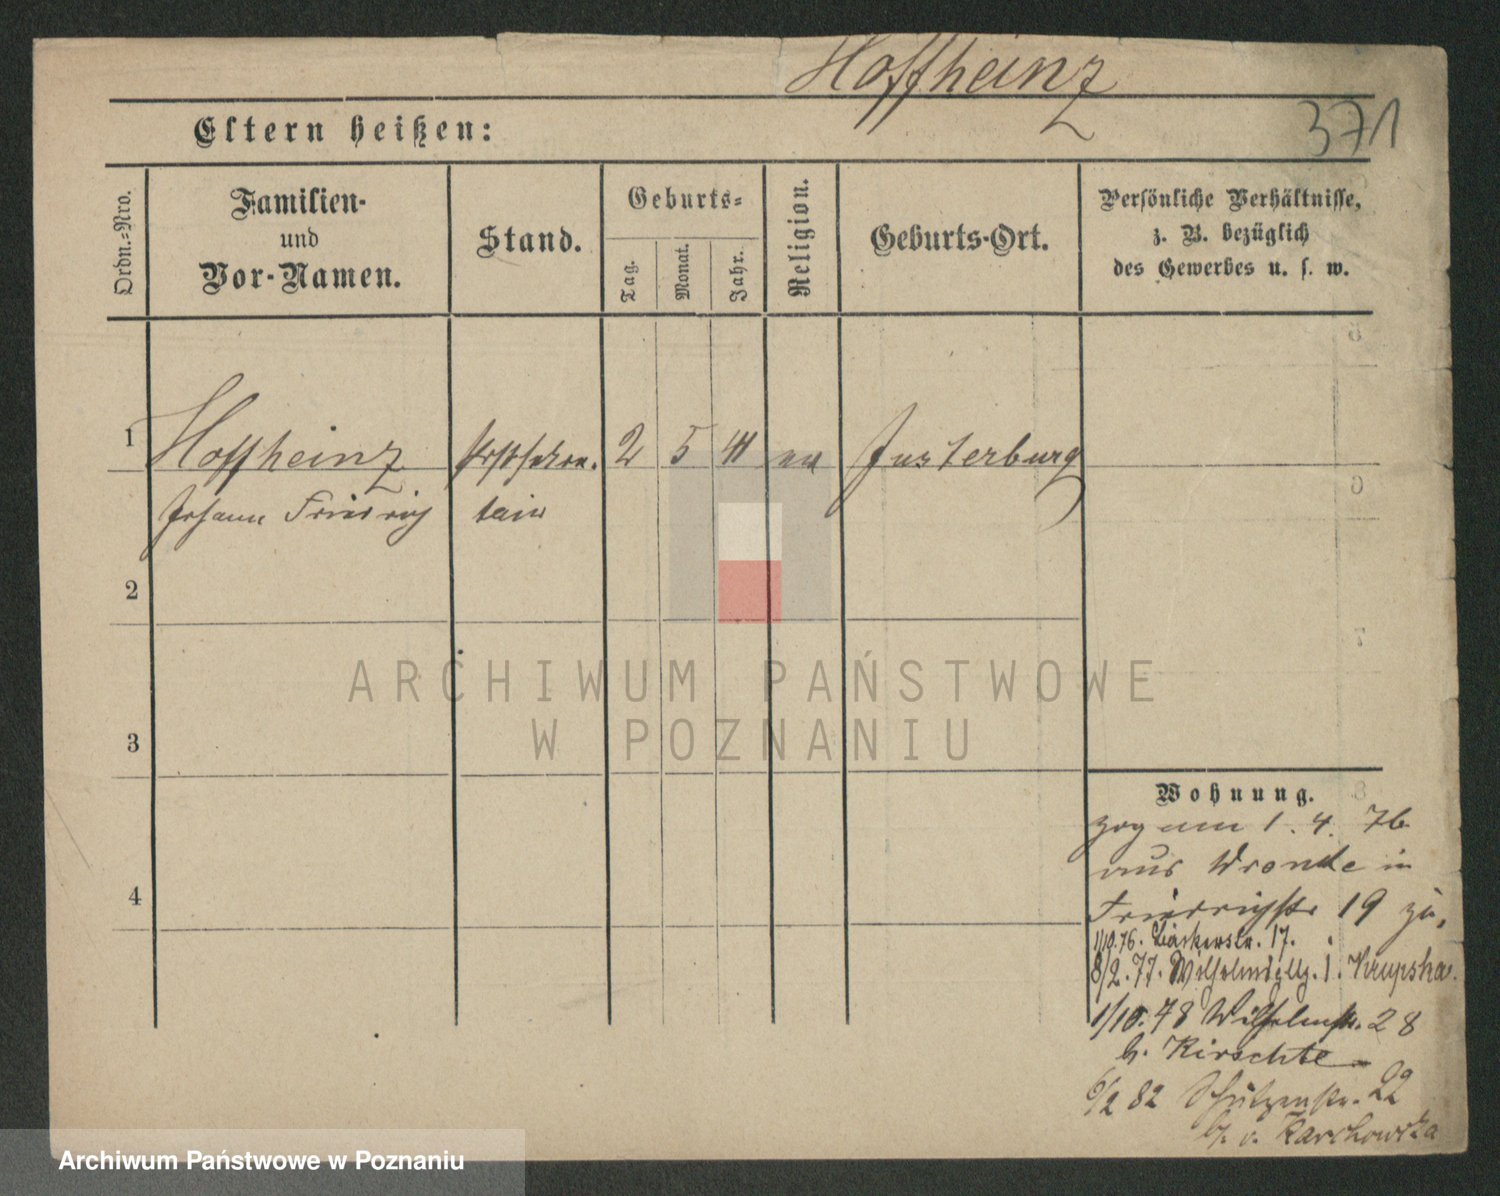 Hoffheinz
371
Eltern heißen:
Ordn.-Nro.
Familien-
und
Vor-Namen.
Stand.
Geburts-
Tag.
Monat.
Jahr.
Religion.
Geburts-Ort.
Persönliche Verhältnisse,
z. B. bezüglich
des Gewerbes u. s. w.
1 Hoffheinz 2 5 41 ev Insterburg
Johann Friedrich
2
3
4
Wohnung.
zog am 1. 4. 76
aus Wronke in
Friedrichstr 19 zu,
1/10.76. Bäckerstr. 17.
8/2.77. Wilhelmsplz. 1. Krupska.
1/10.78 Wilhelmstr. 28
b. Kirschte
6/2 82 Schützenstr. 22
b. v. Karchowska
ARCHIWUM PAŃSTWOWE
W POZNANIU
Archiwum Państwowe w Poznaniu